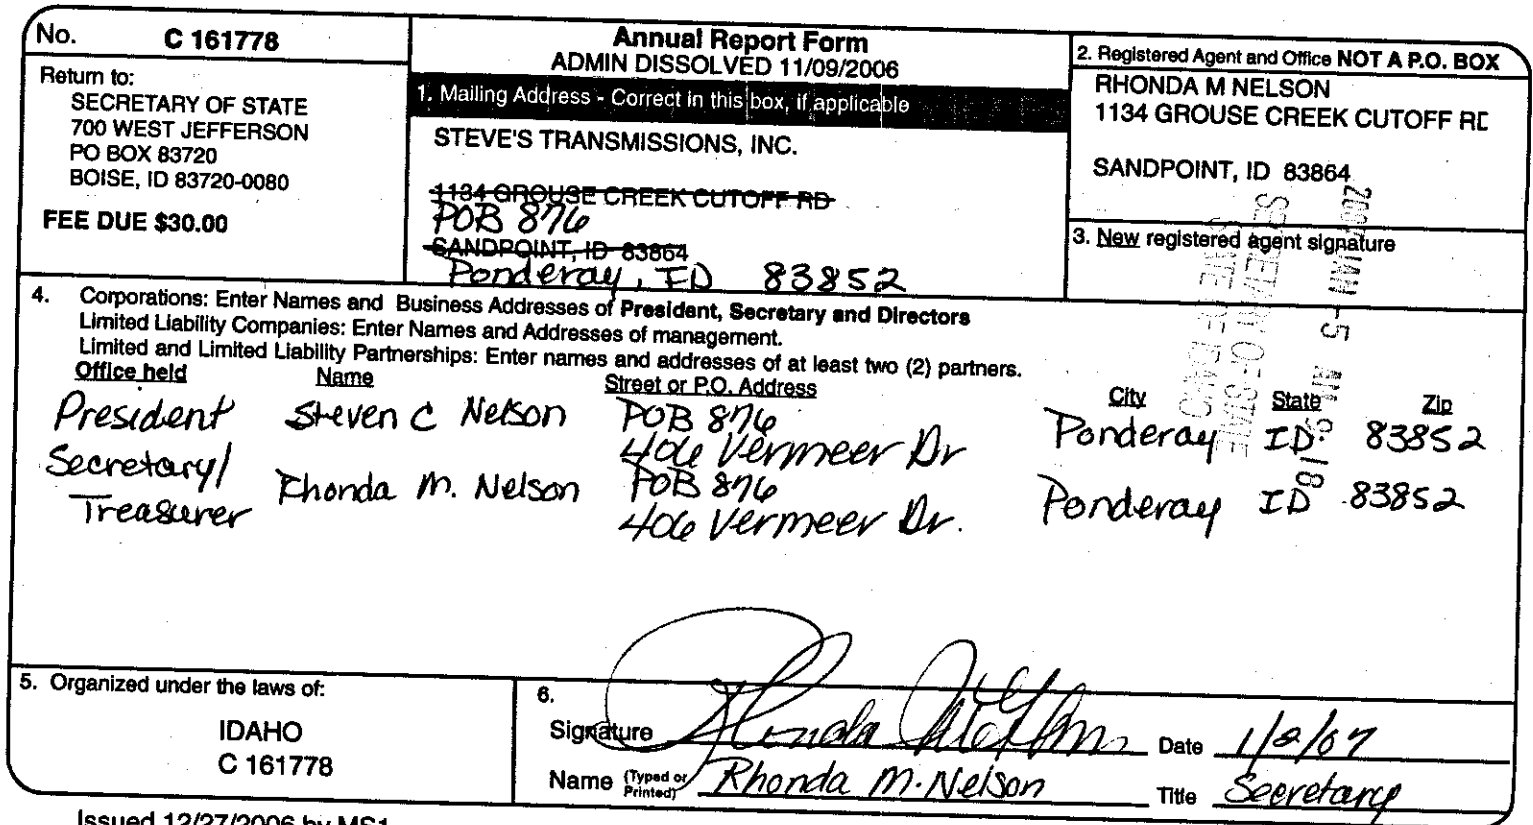 No. C 161778
Return to:
SECRETARY OF STATE
700 WEST JEFFERSON
PO BOX 83720
BOISE, ID 83720-0080
FEE DUE $30.00
Annual Report Form
ADMIN DISSOLVED 11/09/2006
1. Mailing Address - Correct in this box, if applicable
STEVE'S TRANSMISSIONS, INC.
1134 GROUSE CREEK CUTOFF RD
POB 876
SANDPOINT, ID 83864
Ponderay, ID 83852
2. Registered Agent and Office NOT A P.O. BOX
RHONDA M NELSON
1134 GROUSE CREEK CUTOFF RD
SANDPOINT, ID 83864
3. New registered agent signature
SECRETARY OF STATE
STATE OF IDAHO
4. Corporations: Enter Names and Business Addresses of President, Secretary and Directors
Limited Liability Companies: Enter Names and Addresses of management.
Limited and Limited Liability Partnerships: Enter names and addresses of at least two (2) partners.
Office held Name Street or P.O. Address City State Zip
President Steven C Nelson POB 876 Ponderay ID 83852
406 Vermeer Dr
Secretary/ Rhonda M. Nelson POB 876 Ponderay ID 83852
Treasurer 406 Vermeer Dr.
5. Organized under the laws of:
IDAHO
C 161778
6.
Signature Rhonda Date 1/2/07
Name (Typed or Printed) Rhonda M. Nelson Title Secretary
Issued 12/27/2006 by MS1